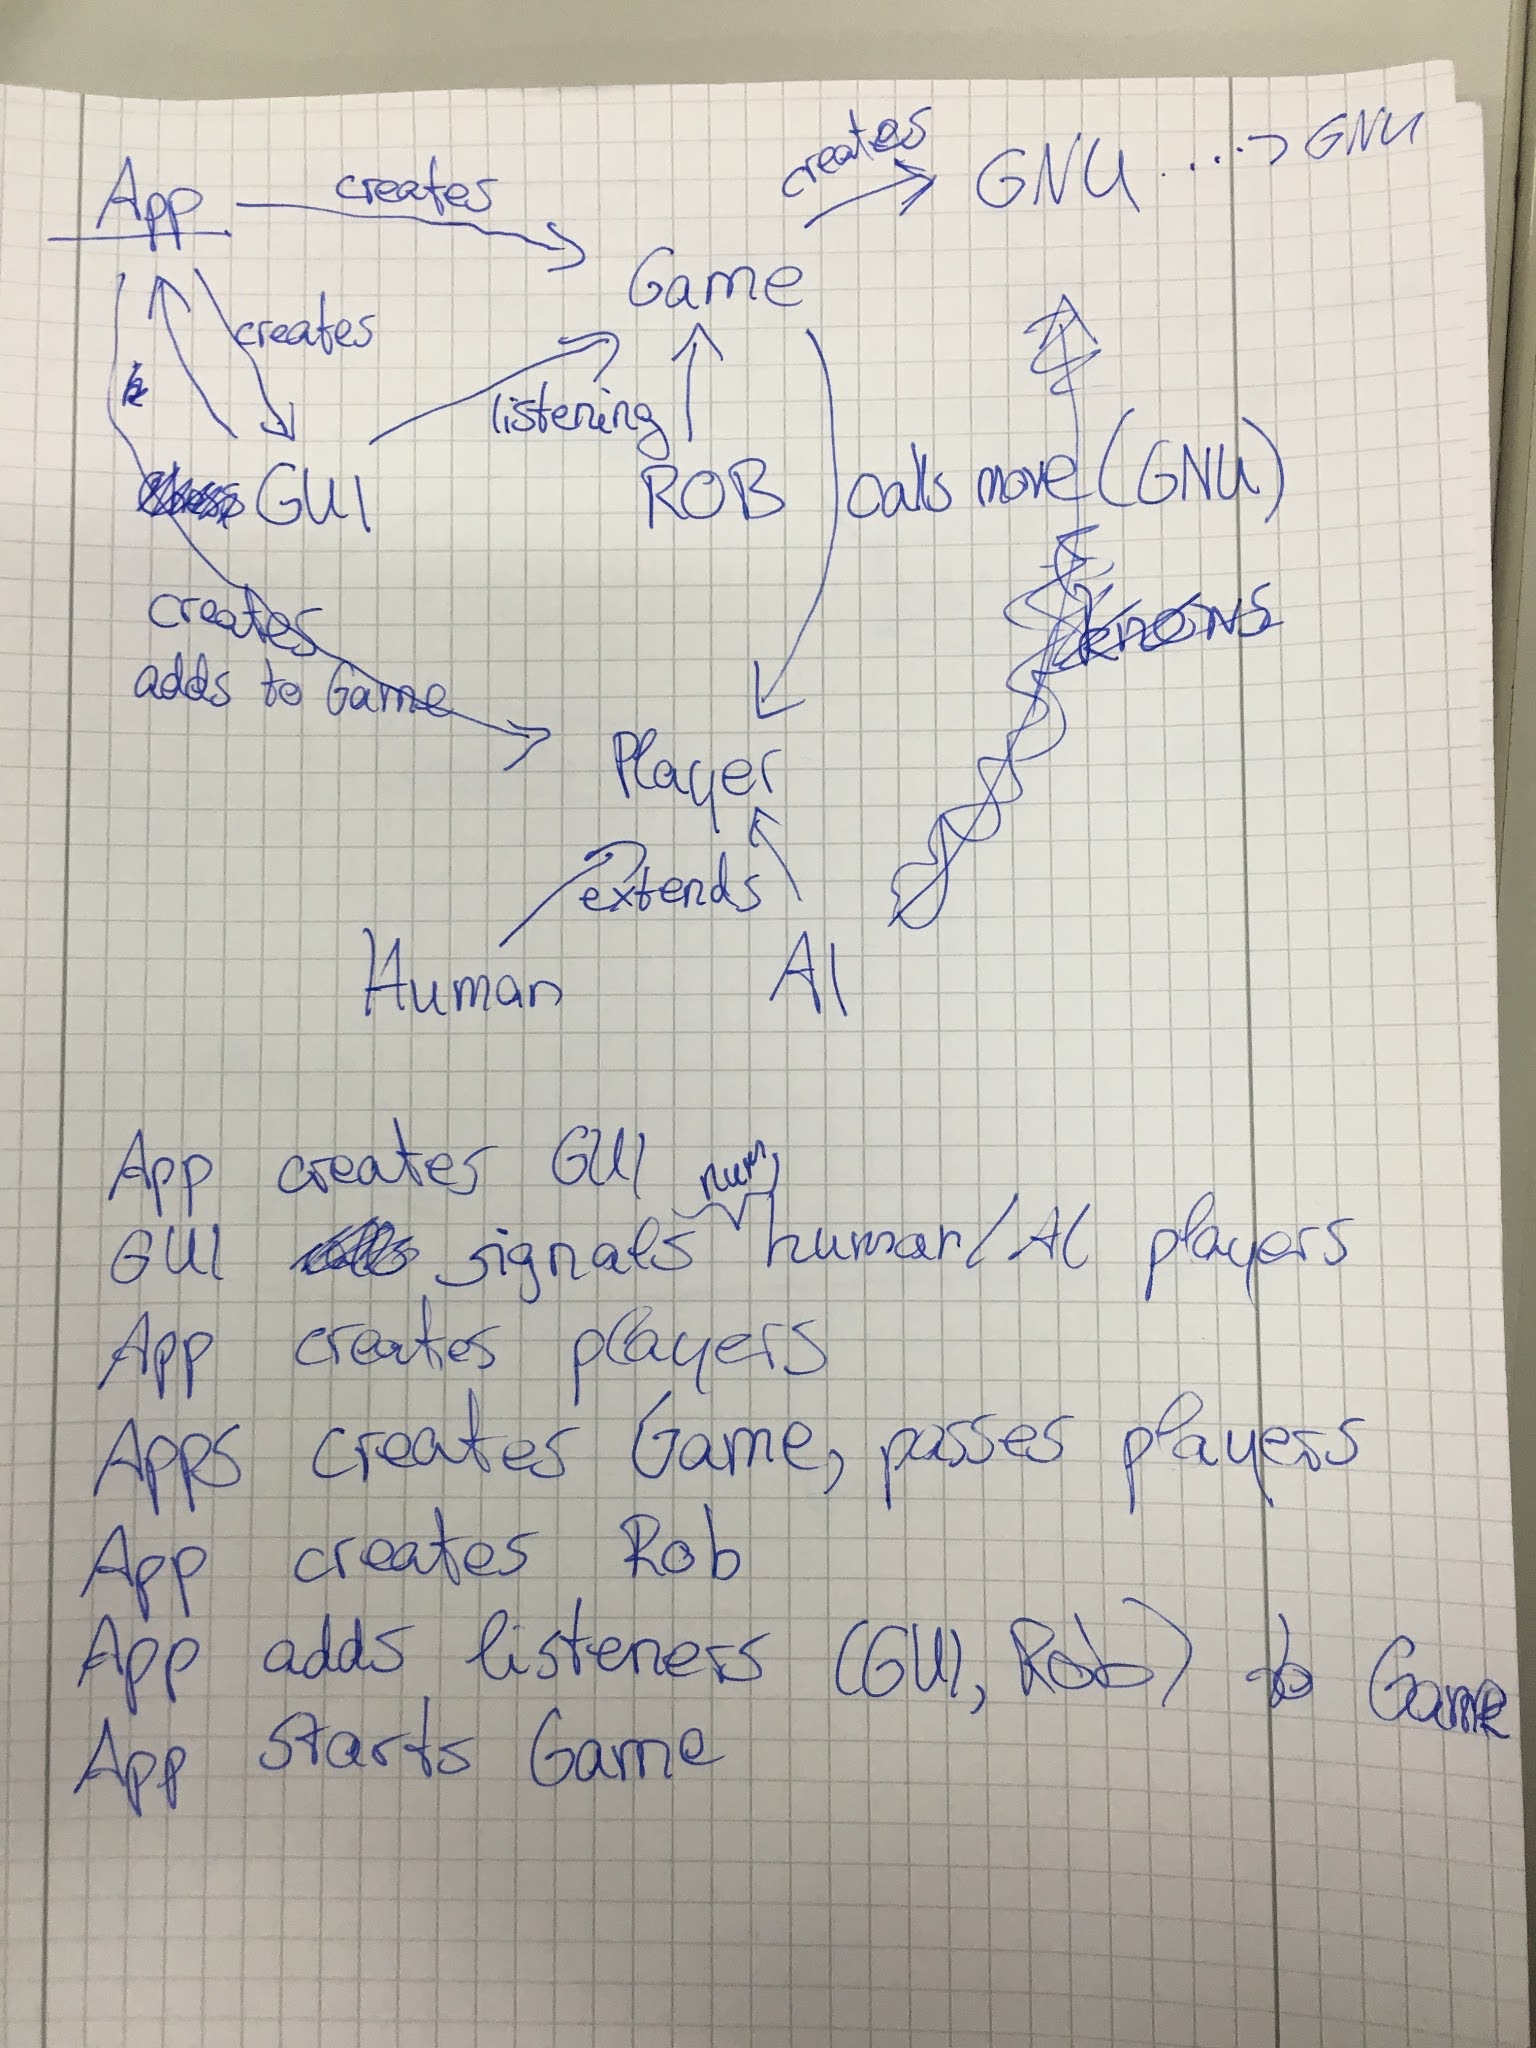 App creates creates GNU ...-> GNU
Game
creates
listening
GUI ROB calls move (GNU)
creates knows
adds to Game
Player
extends
Human AI
App creates GUI
num,
GUI signals human/AI players
App creates players
Apps creates Game, passes players
App creates Rob
App adds listeners (GUI, Rob) to Game
App starts Game